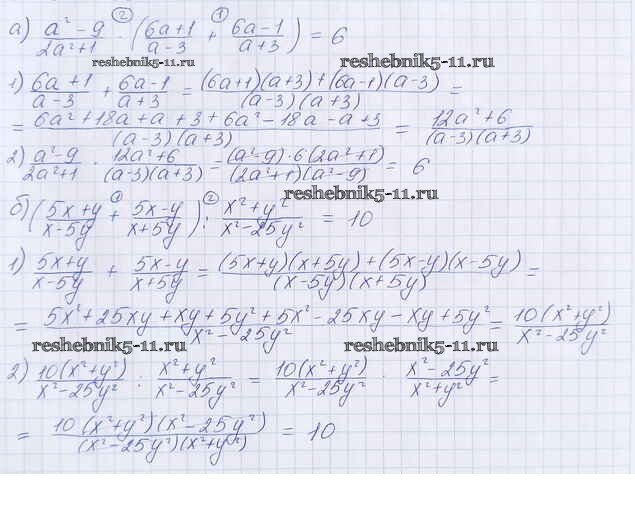 ② ①
а) (a² - 9)/(2a²+1) · ((6a+1)/(a-3) + (6a-1)/(a+3)) = 6
reshebnik5-11.ru reshebnik5-11.ru
1) (6a+1)/(a-3) + (6a-1)/(a+3) = ((6a+1)(a+3)+(6a-1)(a-3))/((a-3)(a+3)) =
= (6a²+18a+a+3+6a²-18a-a+3)/((a-3)(a+3)) = (12a²+6)/((a-3)(a+3))
2) (a²-9)/(2a²+1) · (12a²+6)/((a-3)(a+3)) = ((a²-9)·6(2a²+1))/((2a²+1)(a²-9)) = 6
reshebnik5-11.ru
① ②
б) ((5x+y)/(x-5y) + (5x-y)/(x+5y)) : (x²+y²)/(x²-25y²) = 10
1) (5x+y)/(x-5y) + (5x-y)/(x+5y) = ((5x+y)(x+5y)+(5x-y)(x-5y))/((x-5y)(x+5y)) =
= (5x²+25xy+xy+5y²+5x²-25xy-xy+5y²)/(x²-25y²) = (10(x²+y²))/(x²-25y²)
reshebnik5-11.ru reshebnik5-11.ru
2) (10(x²+y²))/(x²-25y²) : (x²+y²)/(x²-25y²) = (10(x²+y²))/(x²-25y²) · (x²-25y²)/(x²+y²) =
= (10(x²+y²)(x²-25y²))/((x²-25y²)(x²+y²)) = 10